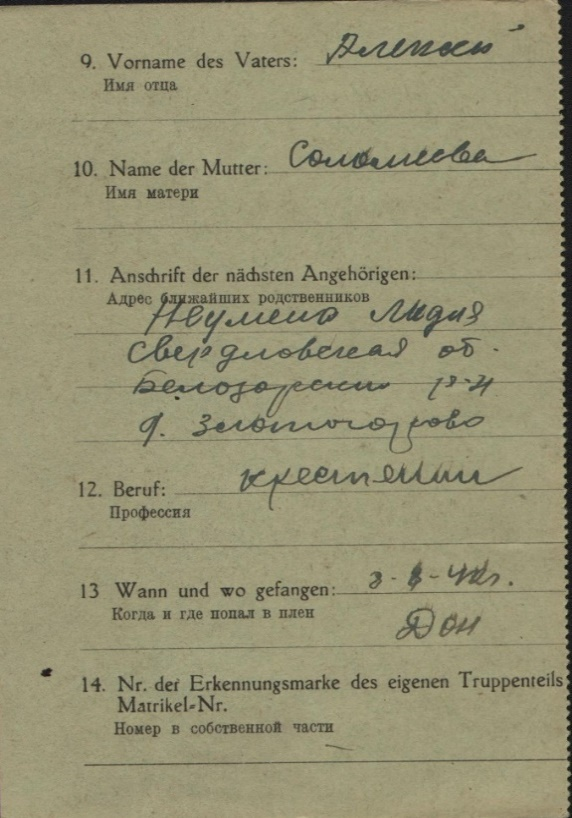 9. Vorname des Vaters: Алексей
Имя отца
10. Name der Mutter: Соломеева
Имя матери
11. Anschrift der nächsten Angehörigen:
Адрес ближайших родственников
Лидия
Свердловская об.
р-н
д.
12. Beruf: крестянин
Профессия
13 Wann und wo gefangen:
Когда и где попал в плен
Дон
14. Nr. der Erkennungsmarke des eigenen Truppenteils
Matrikel=Nr.
Номер в собственной части